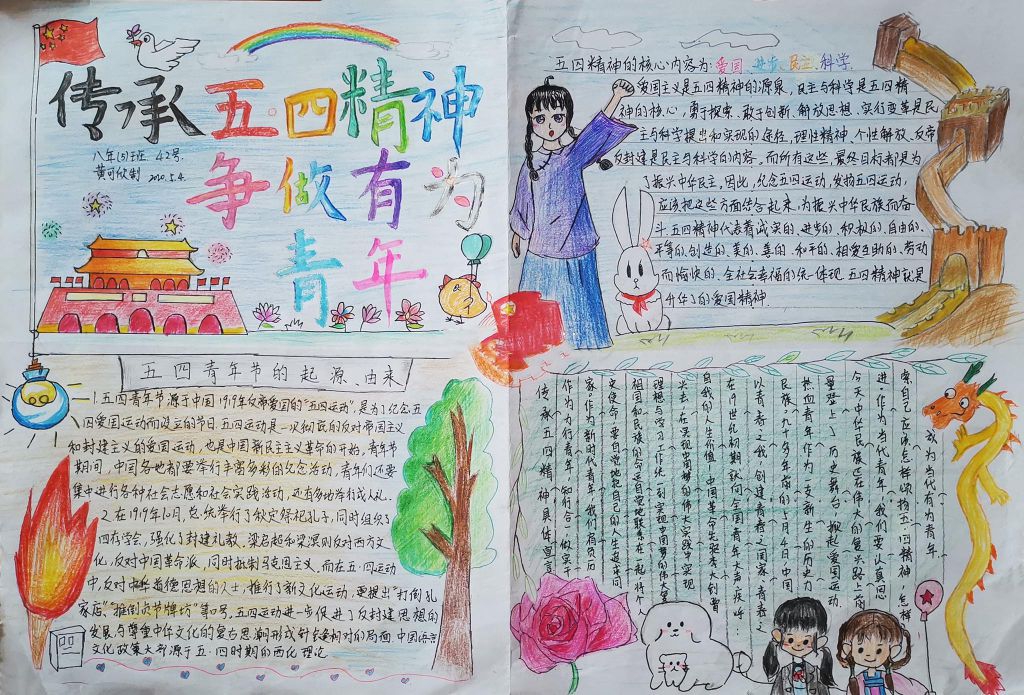 传承五·四精神
争做有为
青年
八年(5)班 42号
黄可欣制 2020.5.4.
五四精神的核心内容为:爱国、进步、民主、科学.
爱国主义是五四精神的源泉,民主与科学是五四精
神的核心,勇于探索、敢于创新、解放思想、实行变革是民
主与科学提出和实现的途径,理性精神、个性解放、反帝
反封建是民主与科学的内容,而所有这些,最终目标都是为
了振兴中华民主,因此,纪念五四运动,发扬五四运动,
应该把这些方面结合起来,为振兴中华民族而奋
斗.五四精神代表着诚实的、进步的、积极的、自由的、
平等的、创造的、美的、善的、和平的、相爱互助的、劳动
而愉快的、全社会幸福的统一体现.五四精神就是
的爱国精神.
五四青年节的起源、由来
1.五四青年节源于中国1919年反帝爱国的“五四运动”,是为了纪念五
四爱国运动而设立的节日.五四运动是一次彻底的反对帝国主义
和封建主义的爱国运动,也是中国新民主主义革命的开始,青年节
期间,中国各地都要举行丰富多彩的纪念活动,青年们还要
集中进行各种社会志愿和社会实践活动,还有多地举行成人礼.
2.在1919年10月,总统举行了秋实祭祀孔子,同时组织了
四存学会,强化了封建礼教、梁启超和梁溟则反对西方文
化,反对中国革命派,同时抵制马克思主义,而在五·四运动
中,反对中华道德思想的人士,推行了新文化运动,更提出“打倒孔
家店”“推倒贞节牌坊”等口号,五四运动进一步促进了反封建思想的
发展,与尊重中华文化的复古思潮形成针锋相对的局面,中国语言
文化政策大部源于五·四时期的西化理论
或为当代有为青年
索自己应该怎样颂扬五·四精神,怎样
进,作为当代青年,我们要认真思
今天中华民族还在伟大的复兴路上前
登上了历史舞台,掀起爱国运动.
热血青年作为一支新生的历史力量
民族.九十多年前的5月4日,中国
以青春之我,创建青春之国家,青春之
在19世纪初期就向全国青年大声疾呼:
自我的人生价值!中国革命先驱李大钊曾
兴.去在实现中国梦的伟大实践中实现
理想与学习工作统一到实现中国梦的伟大
祖国和民族的命运自觉地联系在一起,将个
史使命,要自觉地把自己的人生追求同
家。作为新时代青年,我们肩负历
作为为行青年,知行合一做实干
传承五四精神,具体宣言